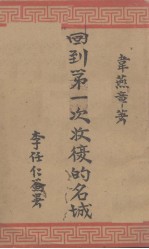 韋燕章等
回到第一次收復的名城
李任仁署